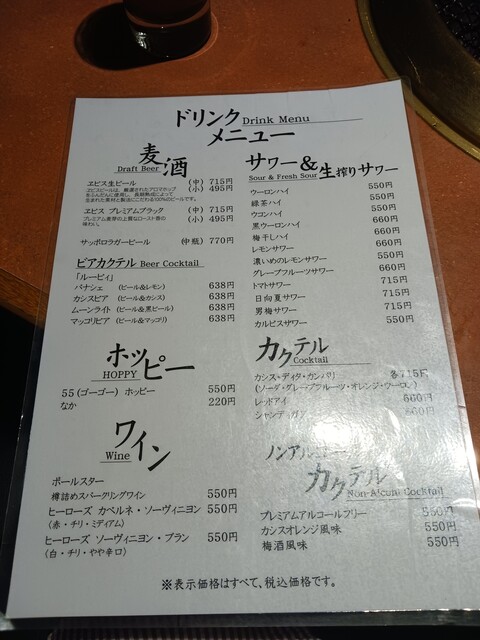 ドリンク Drink Menu
メニュー
麦酒
Draft Beer
ヱビス生ビール (中) 715円
(小) 495円
ヱビスビールは、厳選されたアロマホップ
をふんだんに使用し、長期熟成によって
生まれた素材と製法にこだわる100%のビールです。
ヱビス プレミアムブラック (中) 715円
(小) 495円
プレミアム麦芽の上質なロースト香の
味わい。
サッポロラガービール (中瓶) 770円
ビアカクテル Beer Cocktail
「ルービィ」
パナシェ (ビール&レモン) 638円
カシスビア (ビール&カシス) 638円
ムーンライト (ビール&黒ビール) 638円
マッコリビア (ビール&マッコリ) 638円
ホッピー
HOPPY
55(ゴーゴー) ホッピー 550円
なか 220円
ワイン
Wine
ポールスター
樽詰めスパークリングワイン 550円
ヒーローズ カベルネ・ソーヴィニヨン 550円
(赤・チリ・ミディアム)
ヒーローズ ソーヴィニヨン・ブラン 550円
(白・チリ・やや辛口)
サワー&生搾りサワー
Sour & Fresh Sour
ウーロンハイ 550円
緑茶ハイ 550円
ウコンハイ 550円
黒ウーロンハイ 660円
梅干しハイ 660円
レモンサワー 550円
濃いめのレモンサワー 660円
グレープフルーツサワー 550円
トマトサワー 715円
日向夏サワー 715円
男梅サワー 715円
カルピスサワー 550円
カクテル
Cocktail
カシス・ディタ・カンパリ 各715円
(ソーダ・グレープフルーツ・オレンジ・ウーロン)
レッドアイ 660円
シャンディガフ 660円
ノンアルコール
カクテル
Non-Alcohol Cocktail
プレミアムアルコールフリー 550円
カシスオレンジ風味 550円
梅酒風味 550円
※表示価格はすべて、税込価格です。